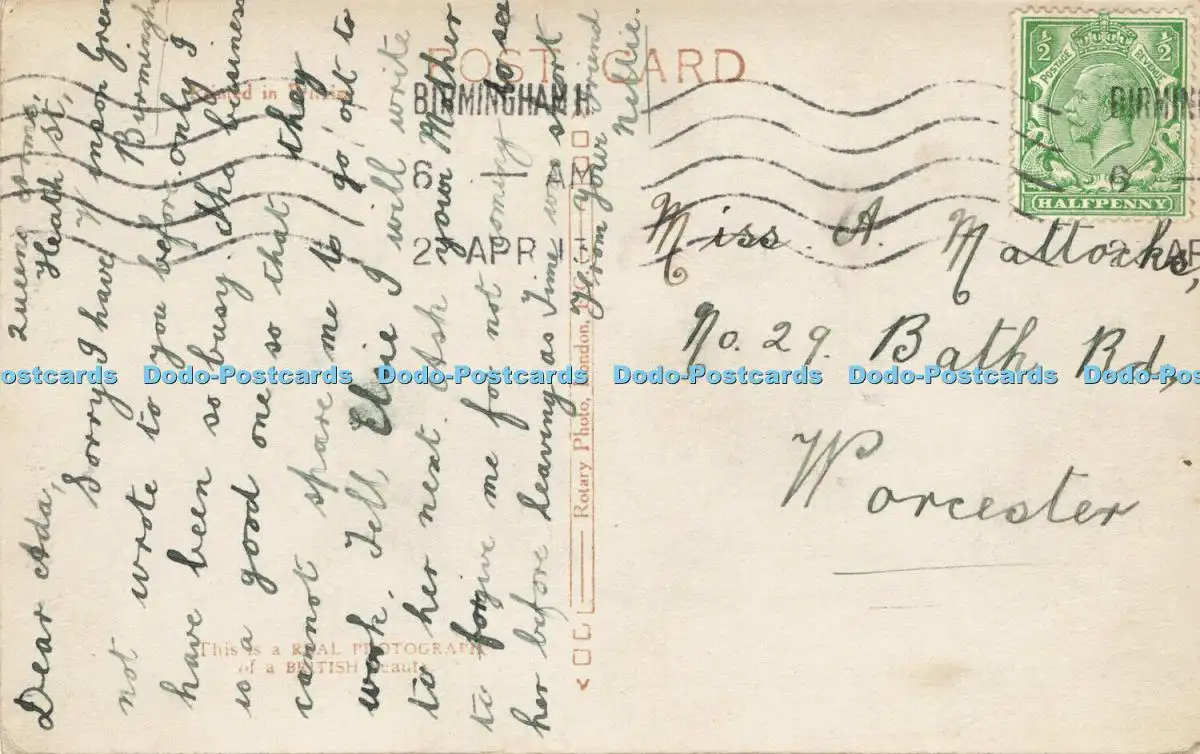 POST CARD
Printed in Britain
BIRMINGHAM
6 AM
2 APR 15
BIRMIN
6
2 AP
POSTAGE REVENUE
½ ½
HALFPENNY
Queens Arms,
Heath St,
Winson Green
Birmingh
Dear Ada,
Sorry I have
not wrote to you before only I
have been so busy. the business
is a good one so that they
cannot spare me to go out to
work. Tell Elsie I will write
to her next. Ask your Mother
to forgive me for not coming to see
her before leaving as Time was short
From your friend
Nellie.
Miss A. Mattocks,
No. 29. Bath Rd,
Worcester
Rotary Photo, London, E.C.
This is a REAL PHOTOGRAPH
of a BRITISH Beauty.
ostcards Dodo-Postcards Dodo-Postcards Dodo-Postcards Dodo-Postcards Dodo-Po